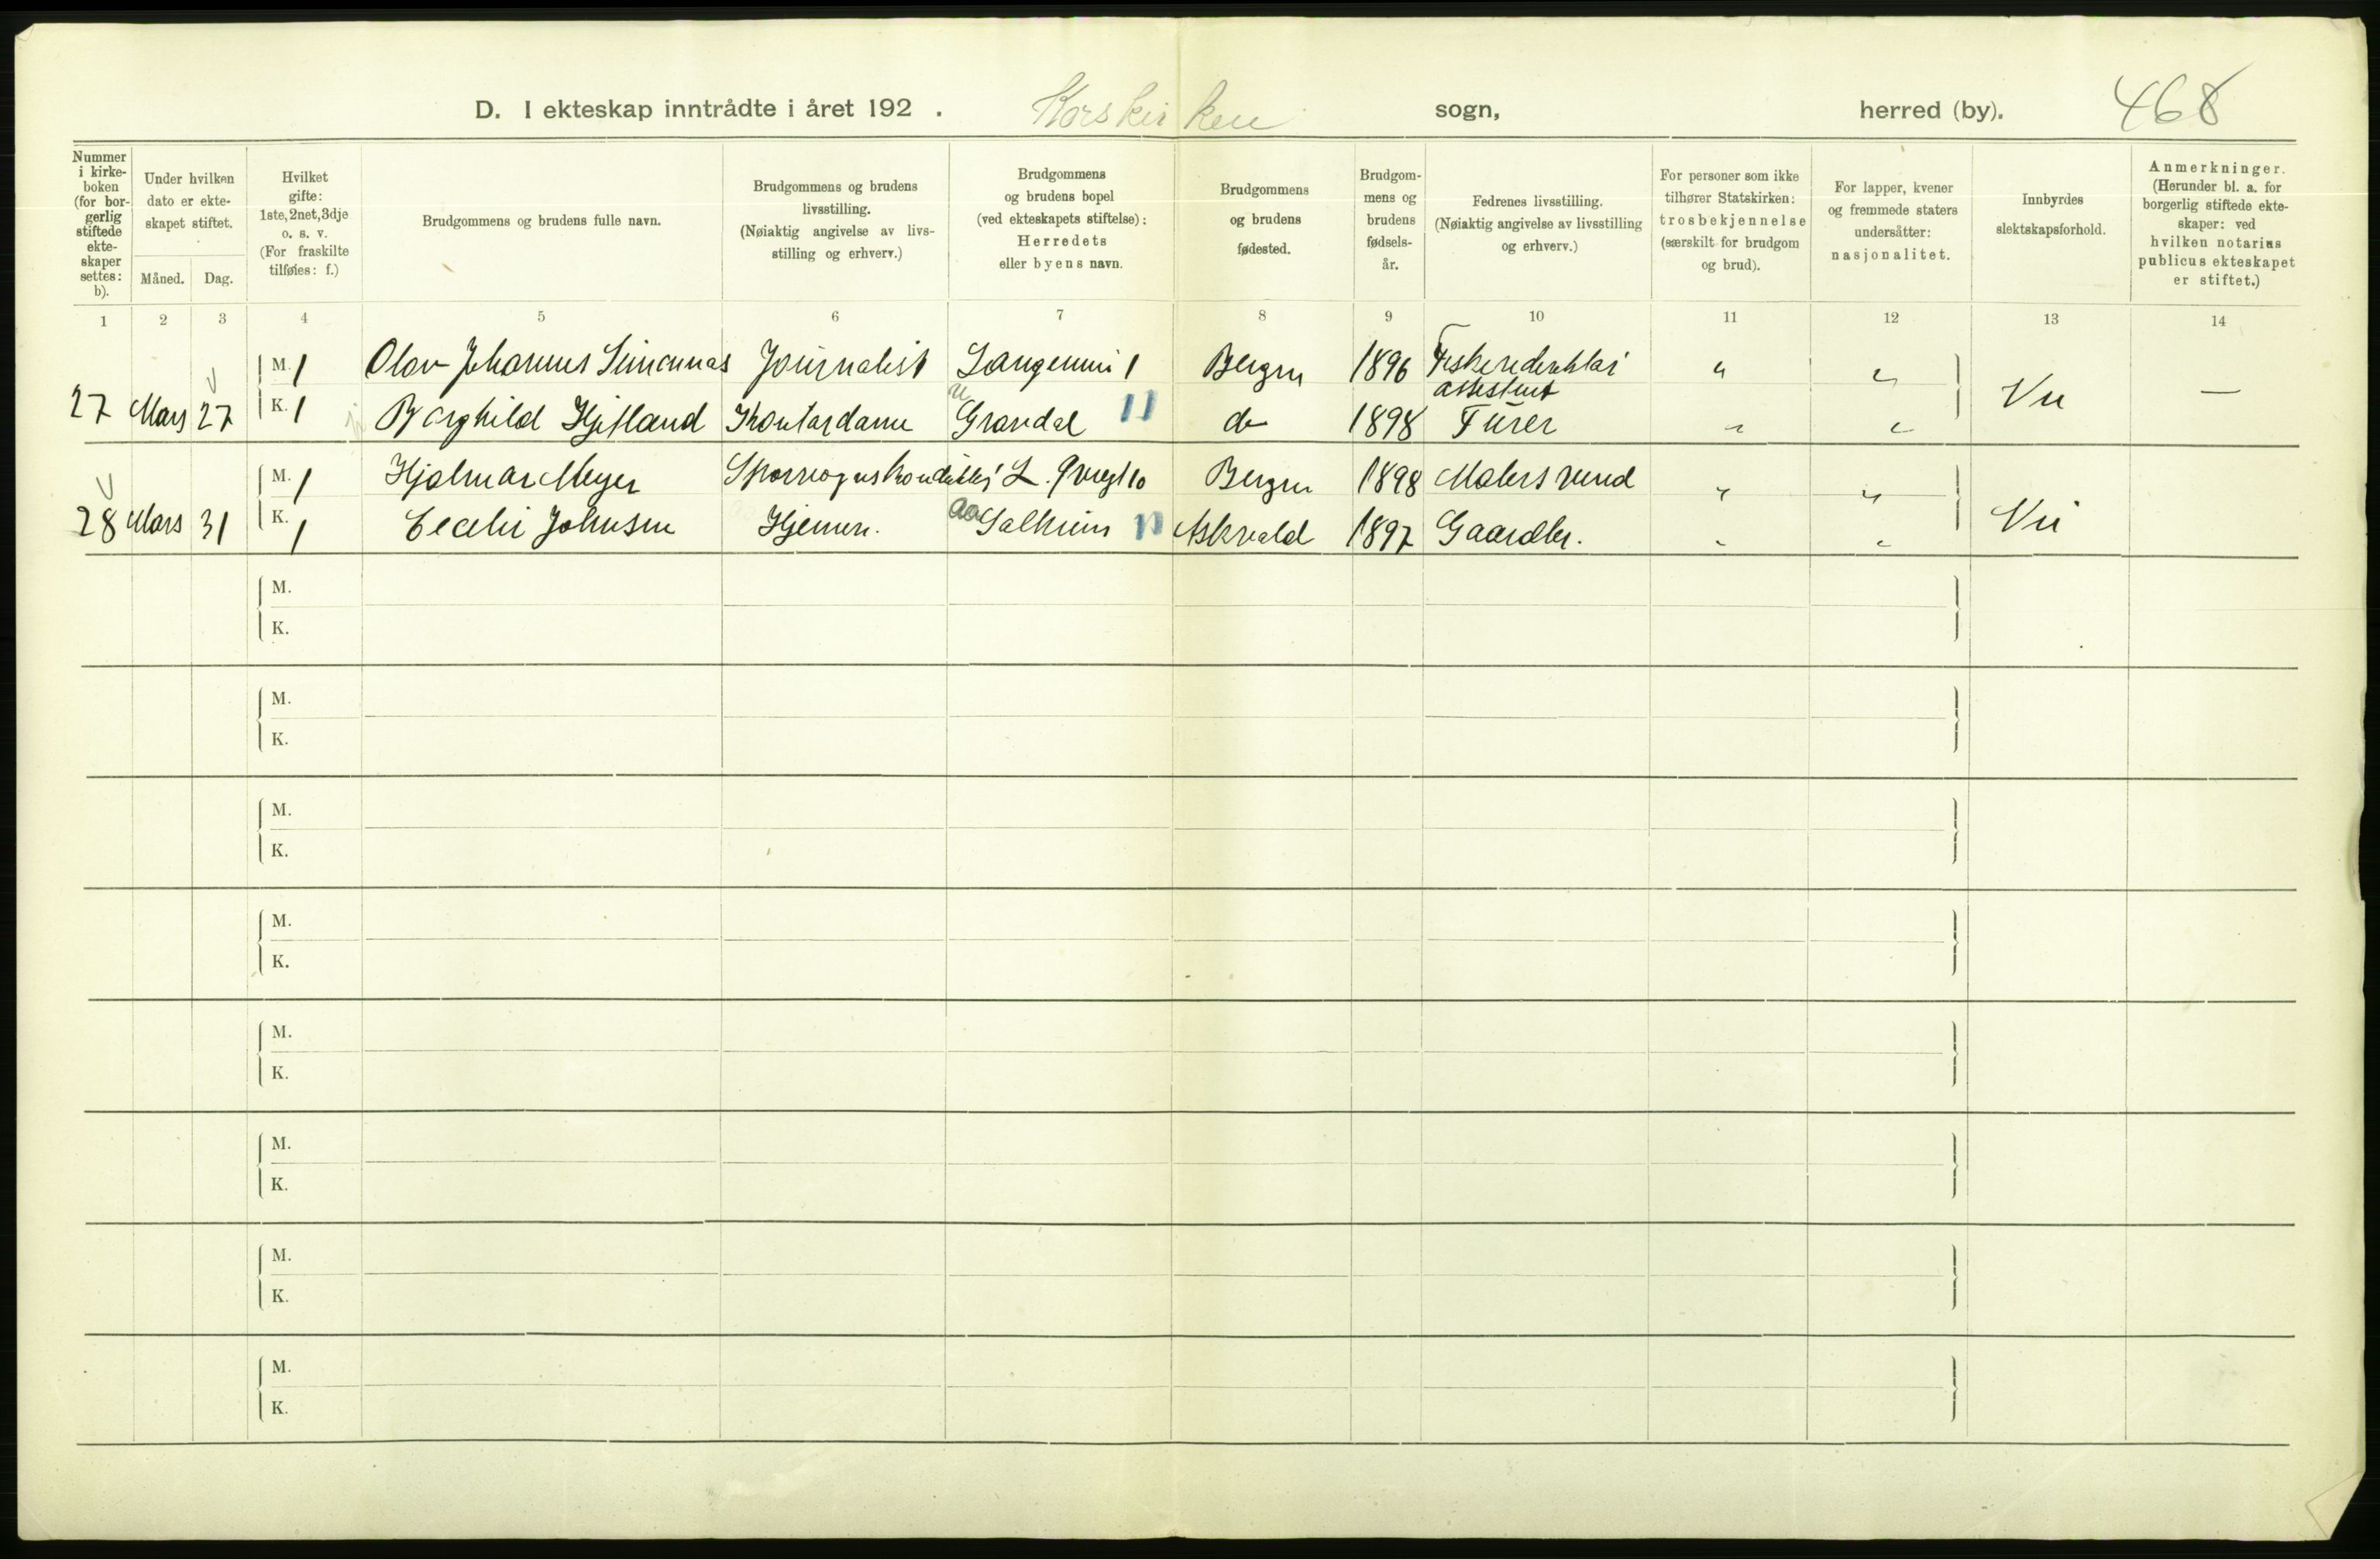 D. I ekteskap inntrådte i året 192 . Korskirken sogn, herred (by). 468
Nummer i kirkeboken (for borgerlig stiftede ekteskaper settes: b).
Under hvilken dato er ekteskapet stiftet.
Måned. Dag.
Hvilket gifte: 1ste, 2net, 3dje o. s. v. (For fraskilte tilføies: f.)
Brudgommens og brudens fulle navn.
Brudgommens og brudens livsstilling. (Nøiaktig angivelse av livsstilling og erhverv.)
Brudgommens og brudens bopel (ved ekteskapets stiftelse): Herredets eller byens navn.
Brudgommens og brudens fødested.
Brudgommens og brudens fødselsår.
Fedrenes livsstilling. (Nøiaktig angivelse av livsstilling og erhverv.)
For personer som ikke tilhører Statskirken: trosbekjennelse (særskilt for brudgom og brud).
For lapper, kvener og fremmede staters undersåtter: nasjonalitet.
Innbyrdes slektskapsforhold.
Anmerkninger. (Herunder bl. a. for borgerlig stiftede ekteskaper: ved hvilken notarius publicus ekteskapet er stiftet.)
1 2 3 4 5 6 7 8 9 10 11 12 13 14
M. 1 Olav Johannes Simonnas Journalist 1 Bergen 1896 " "
assistent
27 Mars 27 K. 1 Borghild Hjitland Kontordame Grandal 11 do 1898 Furer " " —
M. 1 Hjalmar Meyer Bergen 1898 Malersvend " "
28 Mars 31 K. 1 Cecelie Johnsen Hjemm. Salhus 11 Askvold 1897 Gaardbr. " "
M.
K.
M.
K.
M.
K.
M.
K.
M.
K.
M.
K.
M.
K.
M.
K.